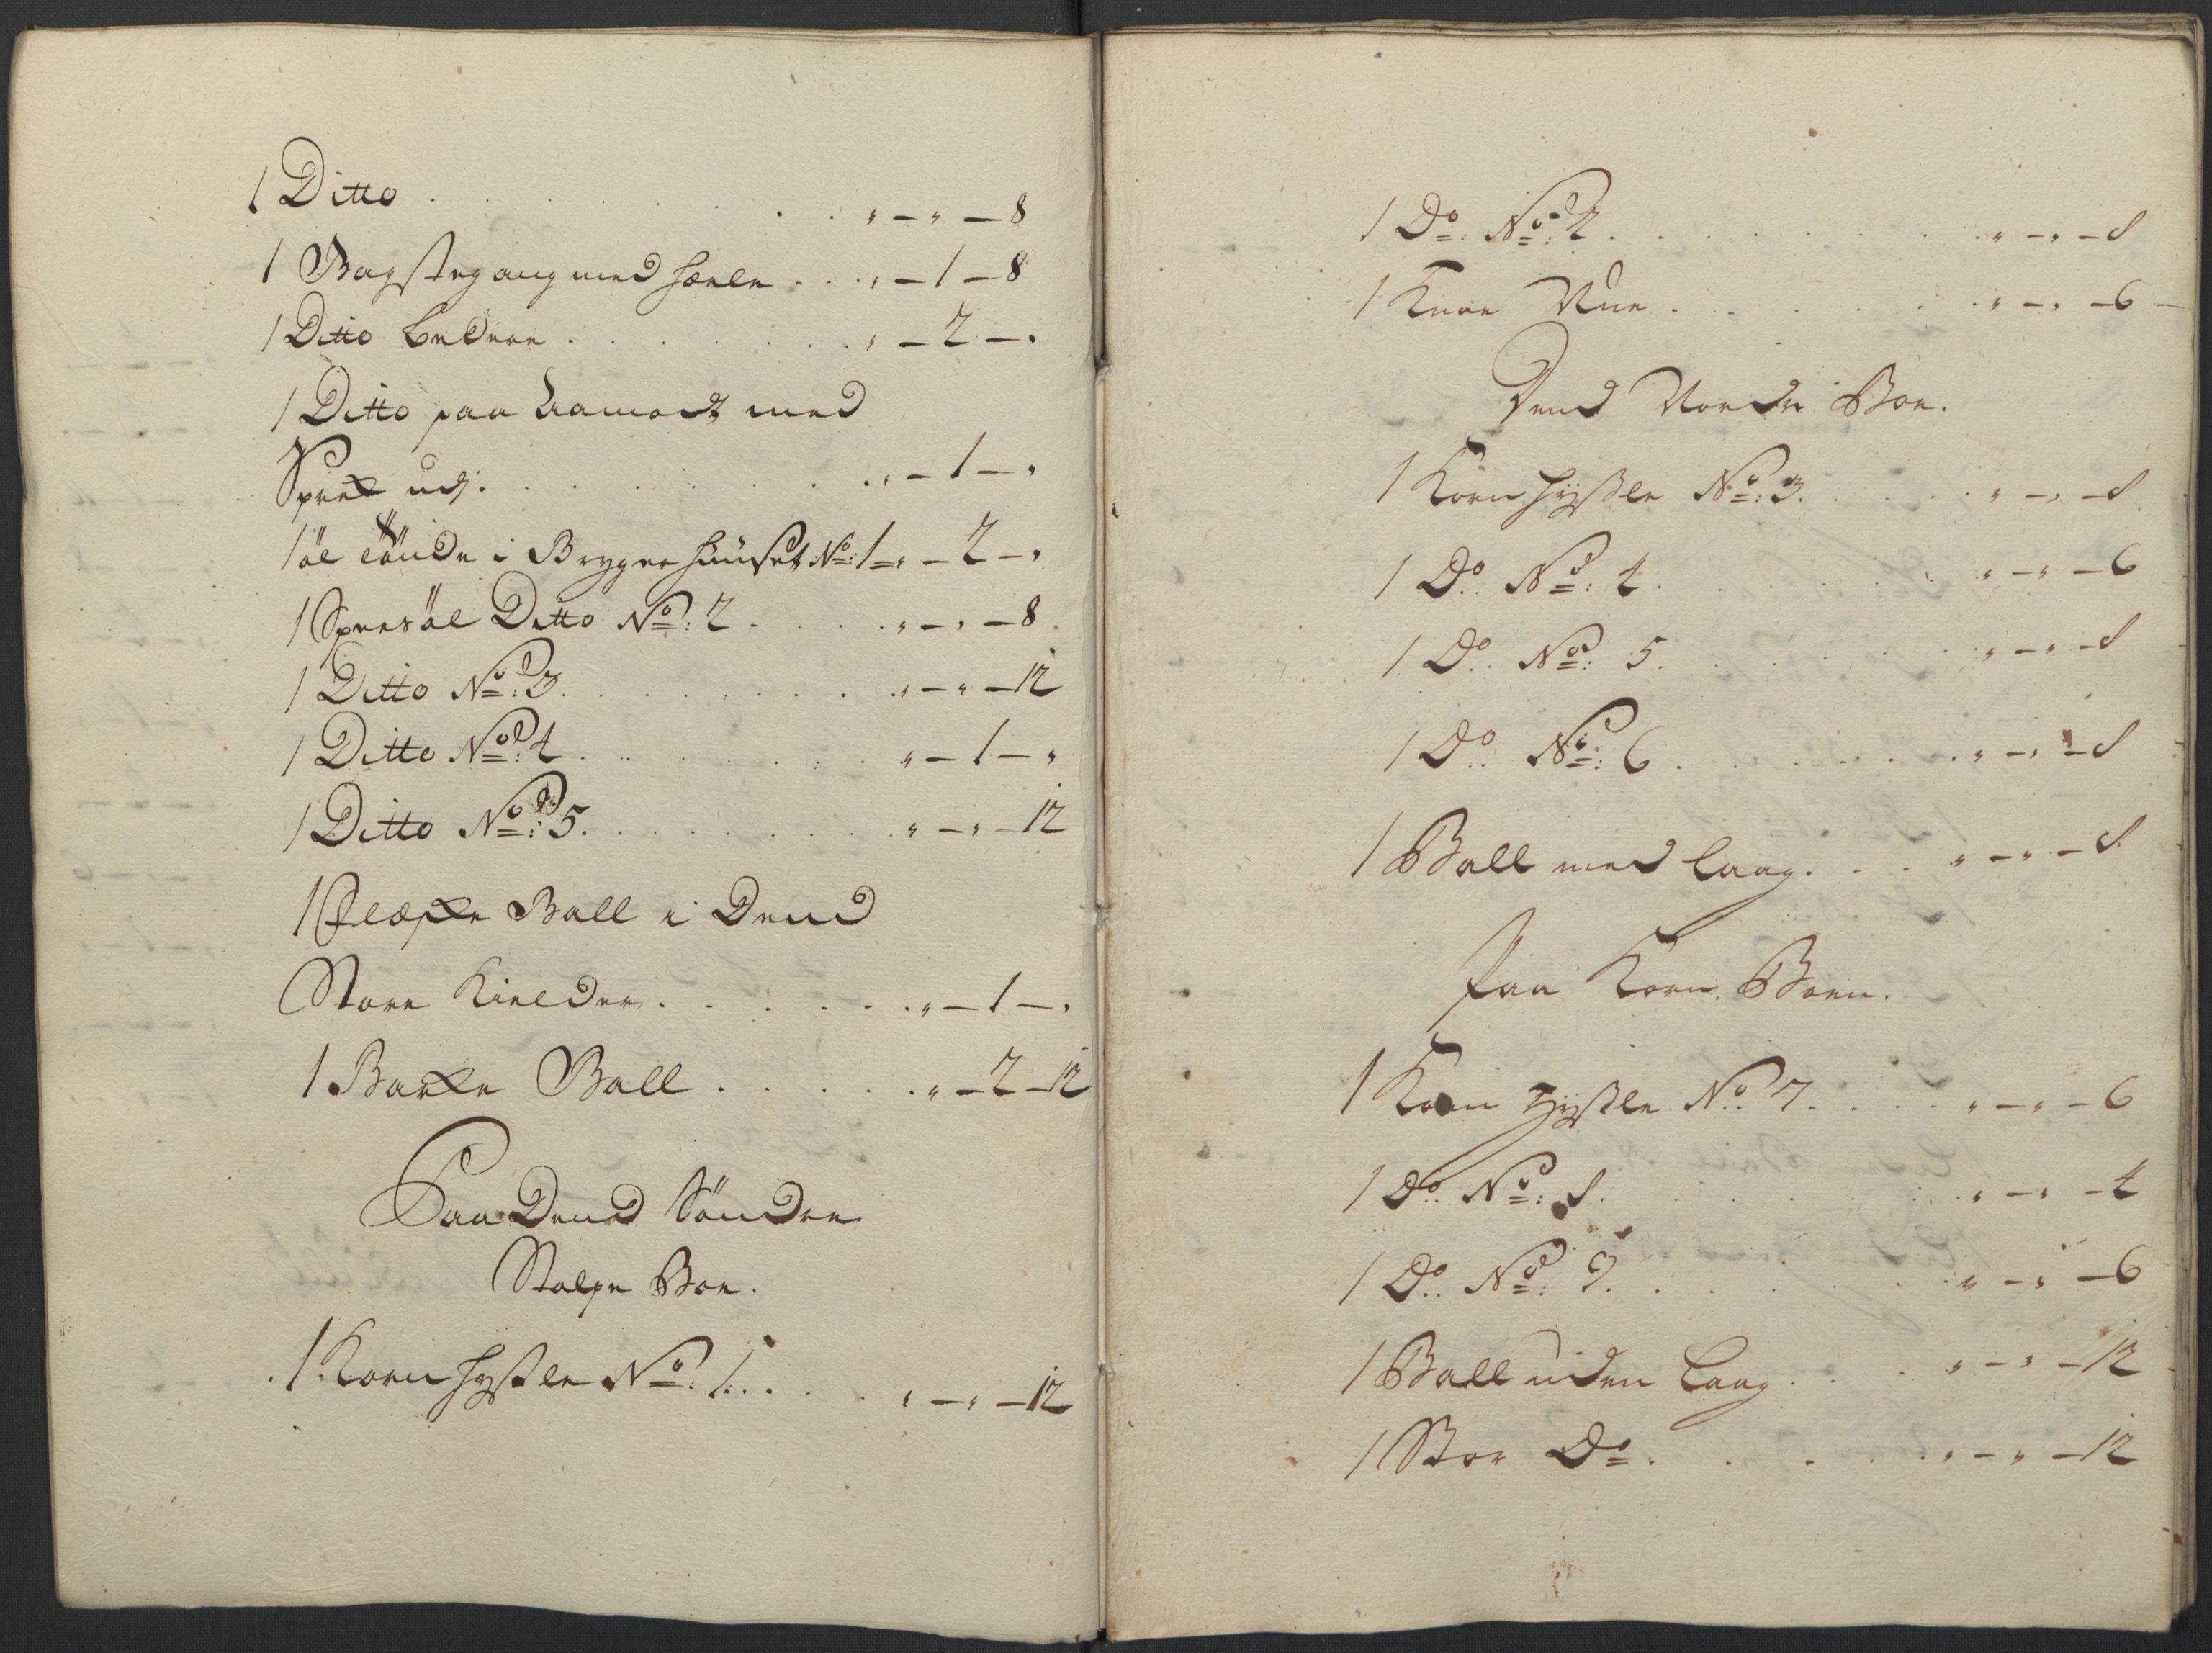 1 Ditto . . . . . . . . . „ – „ – 8
1 Bagstegang med hæele . . . „ – 1 – 8
1 Ditto bedere . . . . . . „ – 2 – „
1 Ditto paa Aamodt med
. . . . . . . . „ – 1 – „
1 öl tönde i Brygerhuuset No: 1 = „ – 2 – „
1 Ditto No: 2 . . . . . „ – „ – 8
1 Ditto No: 3. . . . . . . „ – „ – 12
1 Ditto No: 4 . . . . . . . „ – 1 – „
1 Ditto No: 5. . . . . . . „ – „ – 12
1 Ball i Dend
Store Kielder. . . . . . „ – 1 – „
1 Barke Ball . . . . . . „ – 2 – 12
Paa Dend Söndre
Stolpe Boe.
1 Korn No: 1. . . . „ – „ – 12
1 Do: No: 2 . . . . . . . . „ – „ – 8
1 . . . . . . . . „ – „ – 6 –
Dend Nordr Boe.
1 Korn No: 3. . . . . „ – „ – 8
1 Do. No: 4. . . . . . . „ – „ – 6
1 Do. No: 5. . . . . . . „ – „ – 8
1 Do. No: 6. . . . . . . „ – „ – 8
1 Ball med laag. . . . „ – „ – 8
Paa Korn Boen.
1 Korn No. 7. . . . . „ – „ – 6
1 Do. No: 8. . . . . . . „ – „ – 4
1 Do. No: 9. . . . . . . „ – „ – 6
1 Ball uden Laag. . . . „ – „ – 12
1 Stor Do: . . . . . . „ – „ – 12